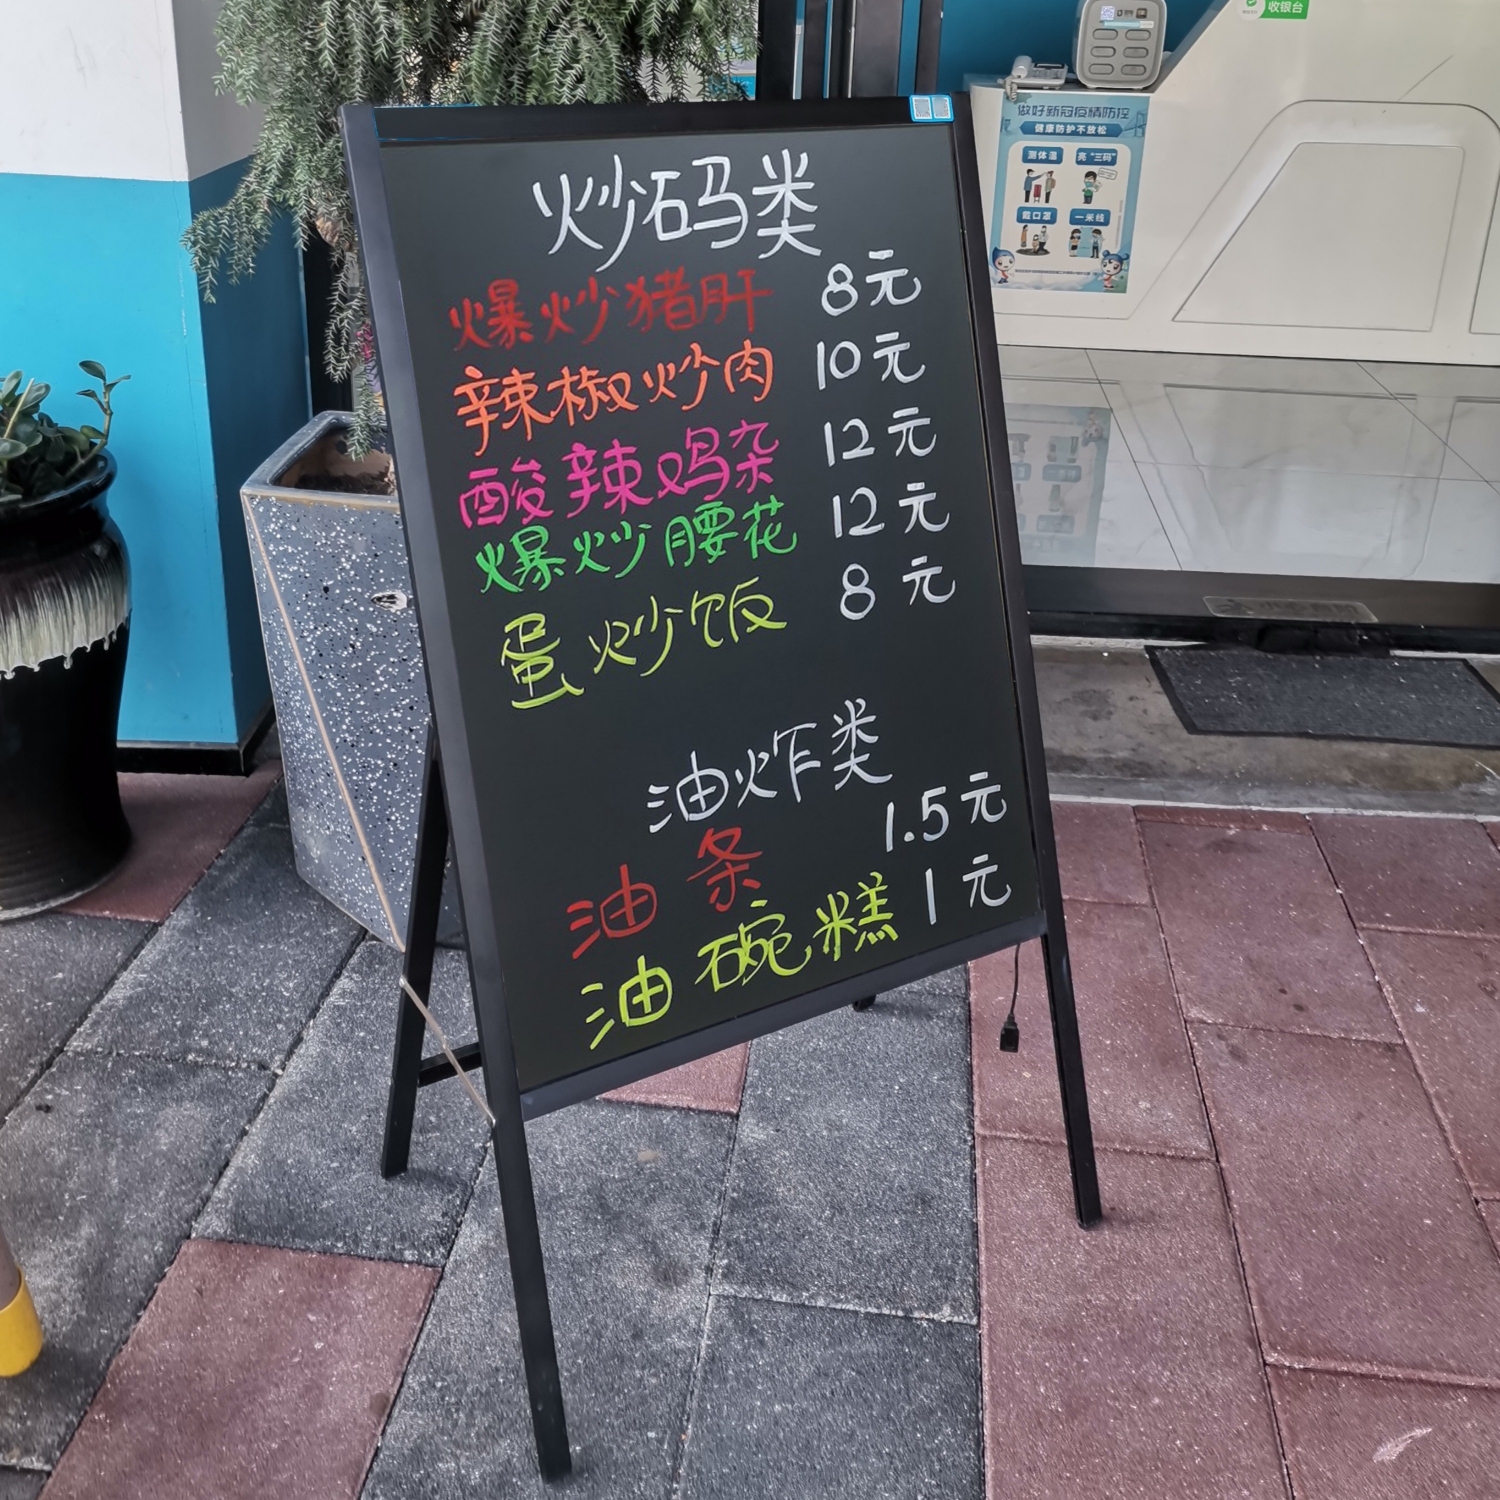 炒码类
爆炒猪肝 8元
辣椒炒肉 10元
酸辣鸡杂 12元
爆炒腰花 12元
蛋炒饭 8元
油炸类
油条 1.5元
油碗糕 1元
收银台
做好新冠疫情防控
健康防护不放松
测体温
亮“三码”
戴口罩
一米线